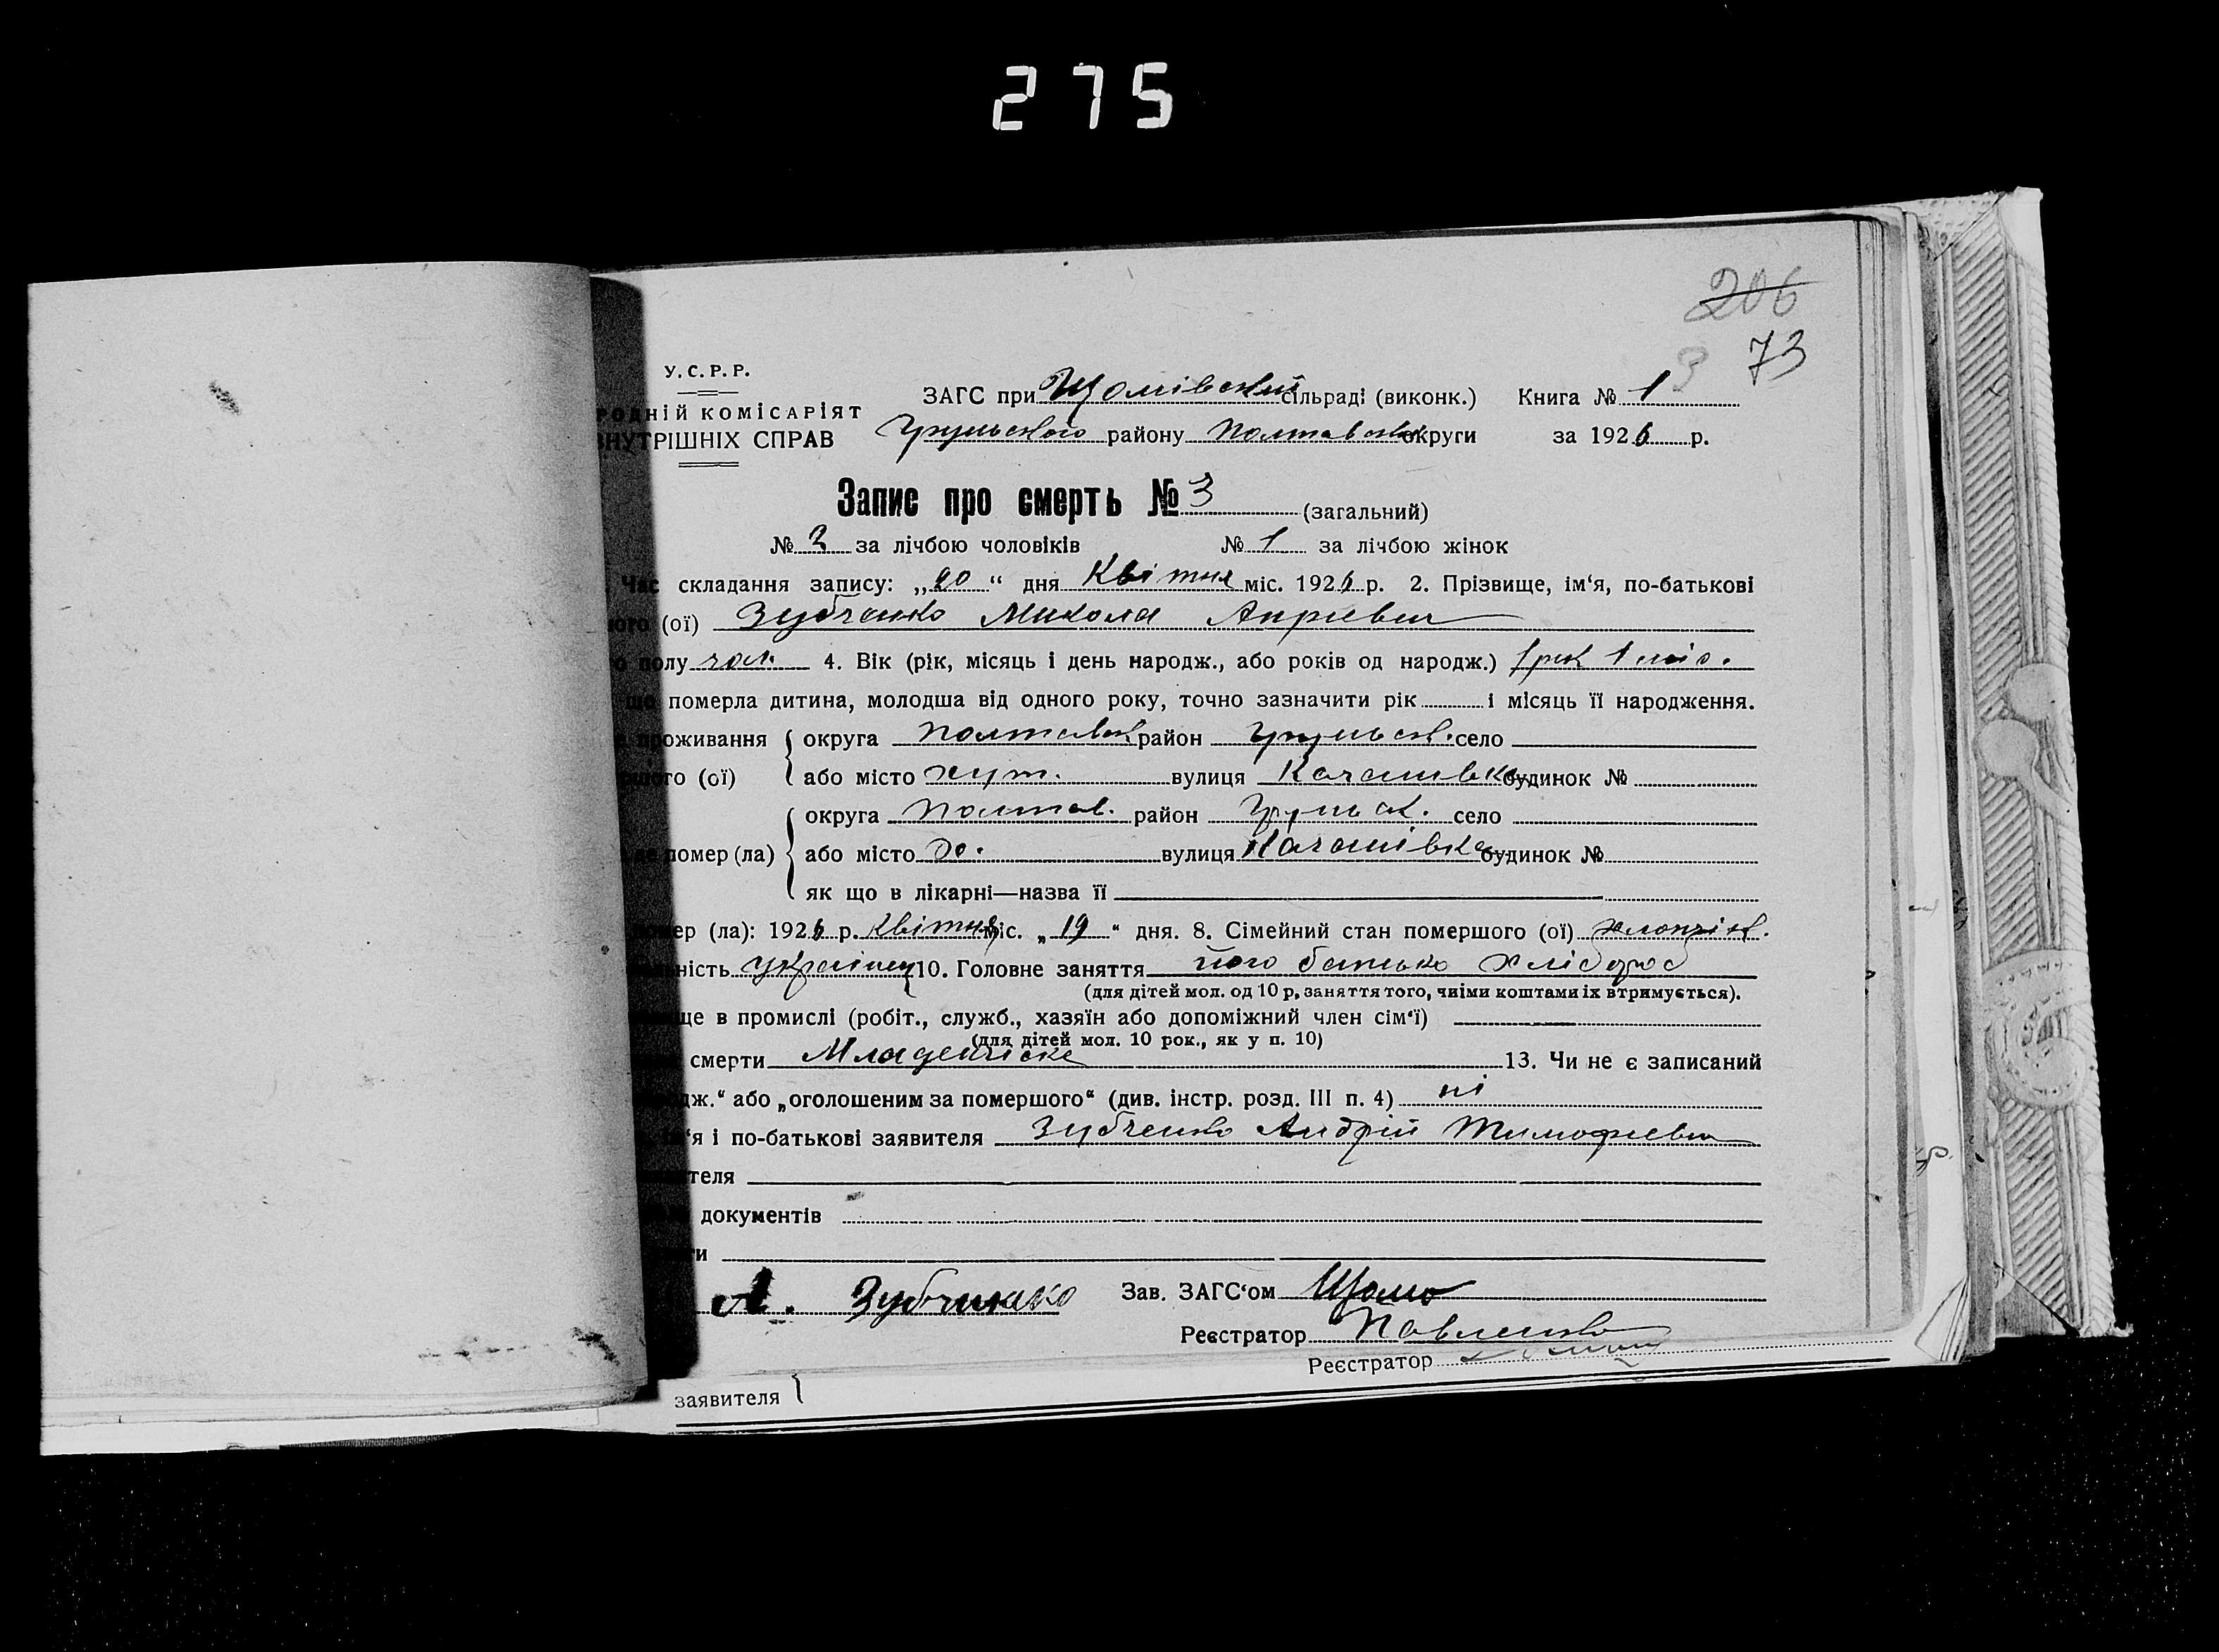 275
206
3 73
У.С.Р.Р.
РОДНІЙ КОМІСАРІЯТ
ВНУТРІШНІХ СПРАВ
ЗАГС при Щомівській сільраді (виконк.) Книга № 1
Грунського району Полтавськ округи за 1926 р.
Запис про смерть № 3 (загальний)
№ 2 за лічбою чоловіків № 1 за лічбою жінок
Час складання запису: „20“ дня Квітня міс. 1926 р. 2. Прізвище, ім‘я, по-батькові
ого (ої) Зубченко Микола Апріевич
о полу чол. 4. Вік (рік, місяць і день народж., або років од народж.) 1 рік 1 міс.
що померла дитина, молодша від одного року, точно зазначити рік і місяць її народження.
проживання округа Полтавськ район село
шого (ої) або місто хут. вулиця Качанівка будинок №
округа Полтав. район село
де помер (ла) або місто х. вулиця Качанівка будинок №
як що в лікарні—назва її
помер (ла): 1926 р. Квітня міс. „19“ дня. 8. Сімейний стан помершого (ої) хлопчік.
ність українец 10. Головне заняття його батько хлібороб
(для дітей мол. од 10 р, заняття того, чиїми коштами їх втримується).
ще в промислі (робіт., служб., хазяїн або допоміжний член сім‘ї)
(для дітей мол. 10 рок., як у п. 10)
смерти Младенчіска 13. Чи не є записаний
дж.“ або „оголошеним за помершого“ (див. інстр. розд. III п. 4) ні
‘я і по-батькові заявителя Зубченко Андрій Тимофіевич
теля
документів
ги
А. Зубченко Зав. ЗАГС‘ом Щомо
Реєстратор Павленко
Реєстратор
заявителя